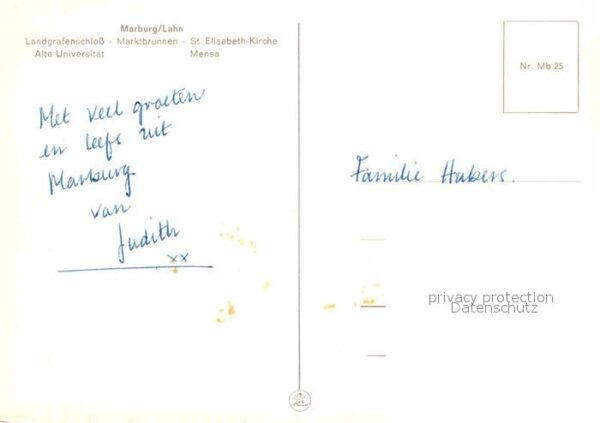 Marburg/Lahn
Landgrafenschloß · Marktbrunnen · St. Elisabeth-Kirche
Alte Universität Mensa
Nr. Mb 25
Met veel groeten
en leefs uit
Marburg
van
Judith
xx
Familie Hubers.
privacy protection
Datenschutz